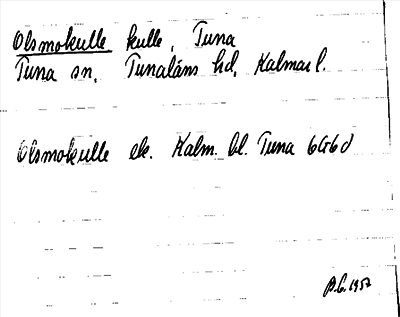 Olsmokulle kulle, Tuna
Tuna sn, Tunaläns hd, Kalmar l.
Olsmokulle ek. Kalm. bl. Tuna 6G6d
B.C. 1957